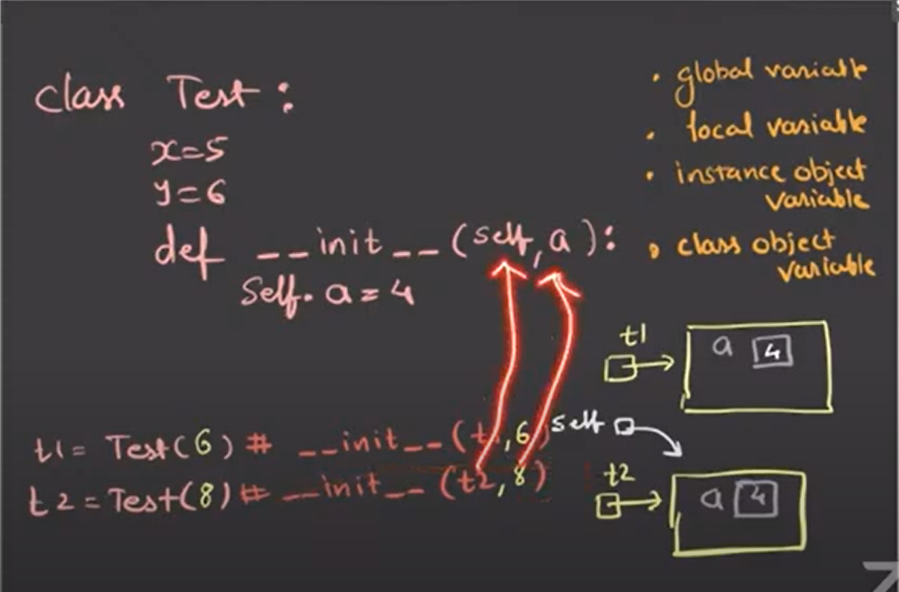 class Test:
x=5
y=6
def __init__(self,a):
Self.a=4
t1= Test(6)# __init__(t1,6)
t2=Test(8)# __init__(t2,8)
. global variable
. local variable
. instance object
variable
. class object
variable
t1
a 4
self
t2
a 4